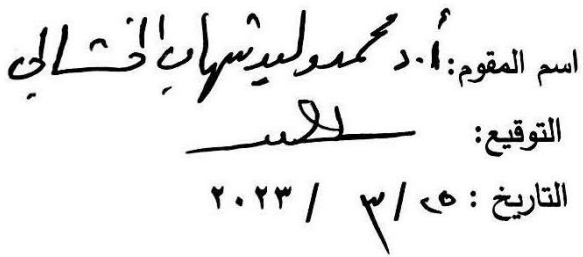 اسم المقوم: أ.د محمد وليد شهاب
التوقيع:
التاريخ: ٢٥ / ٣ / ٢٠٢٣